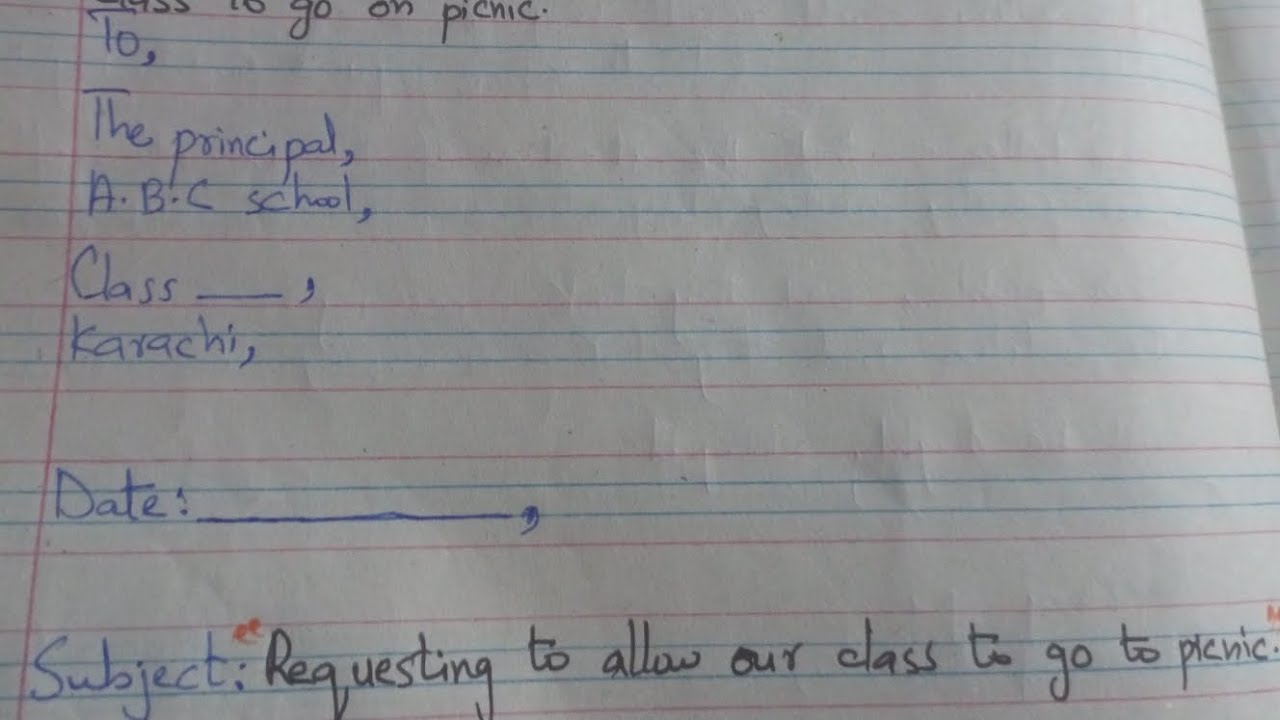 class to go on picnic.
To,
The principal,
A.B.C school,
Class ___,
Karachi,
Date: ___________,
Subject: "Requesting to allow our class to go to picnic."